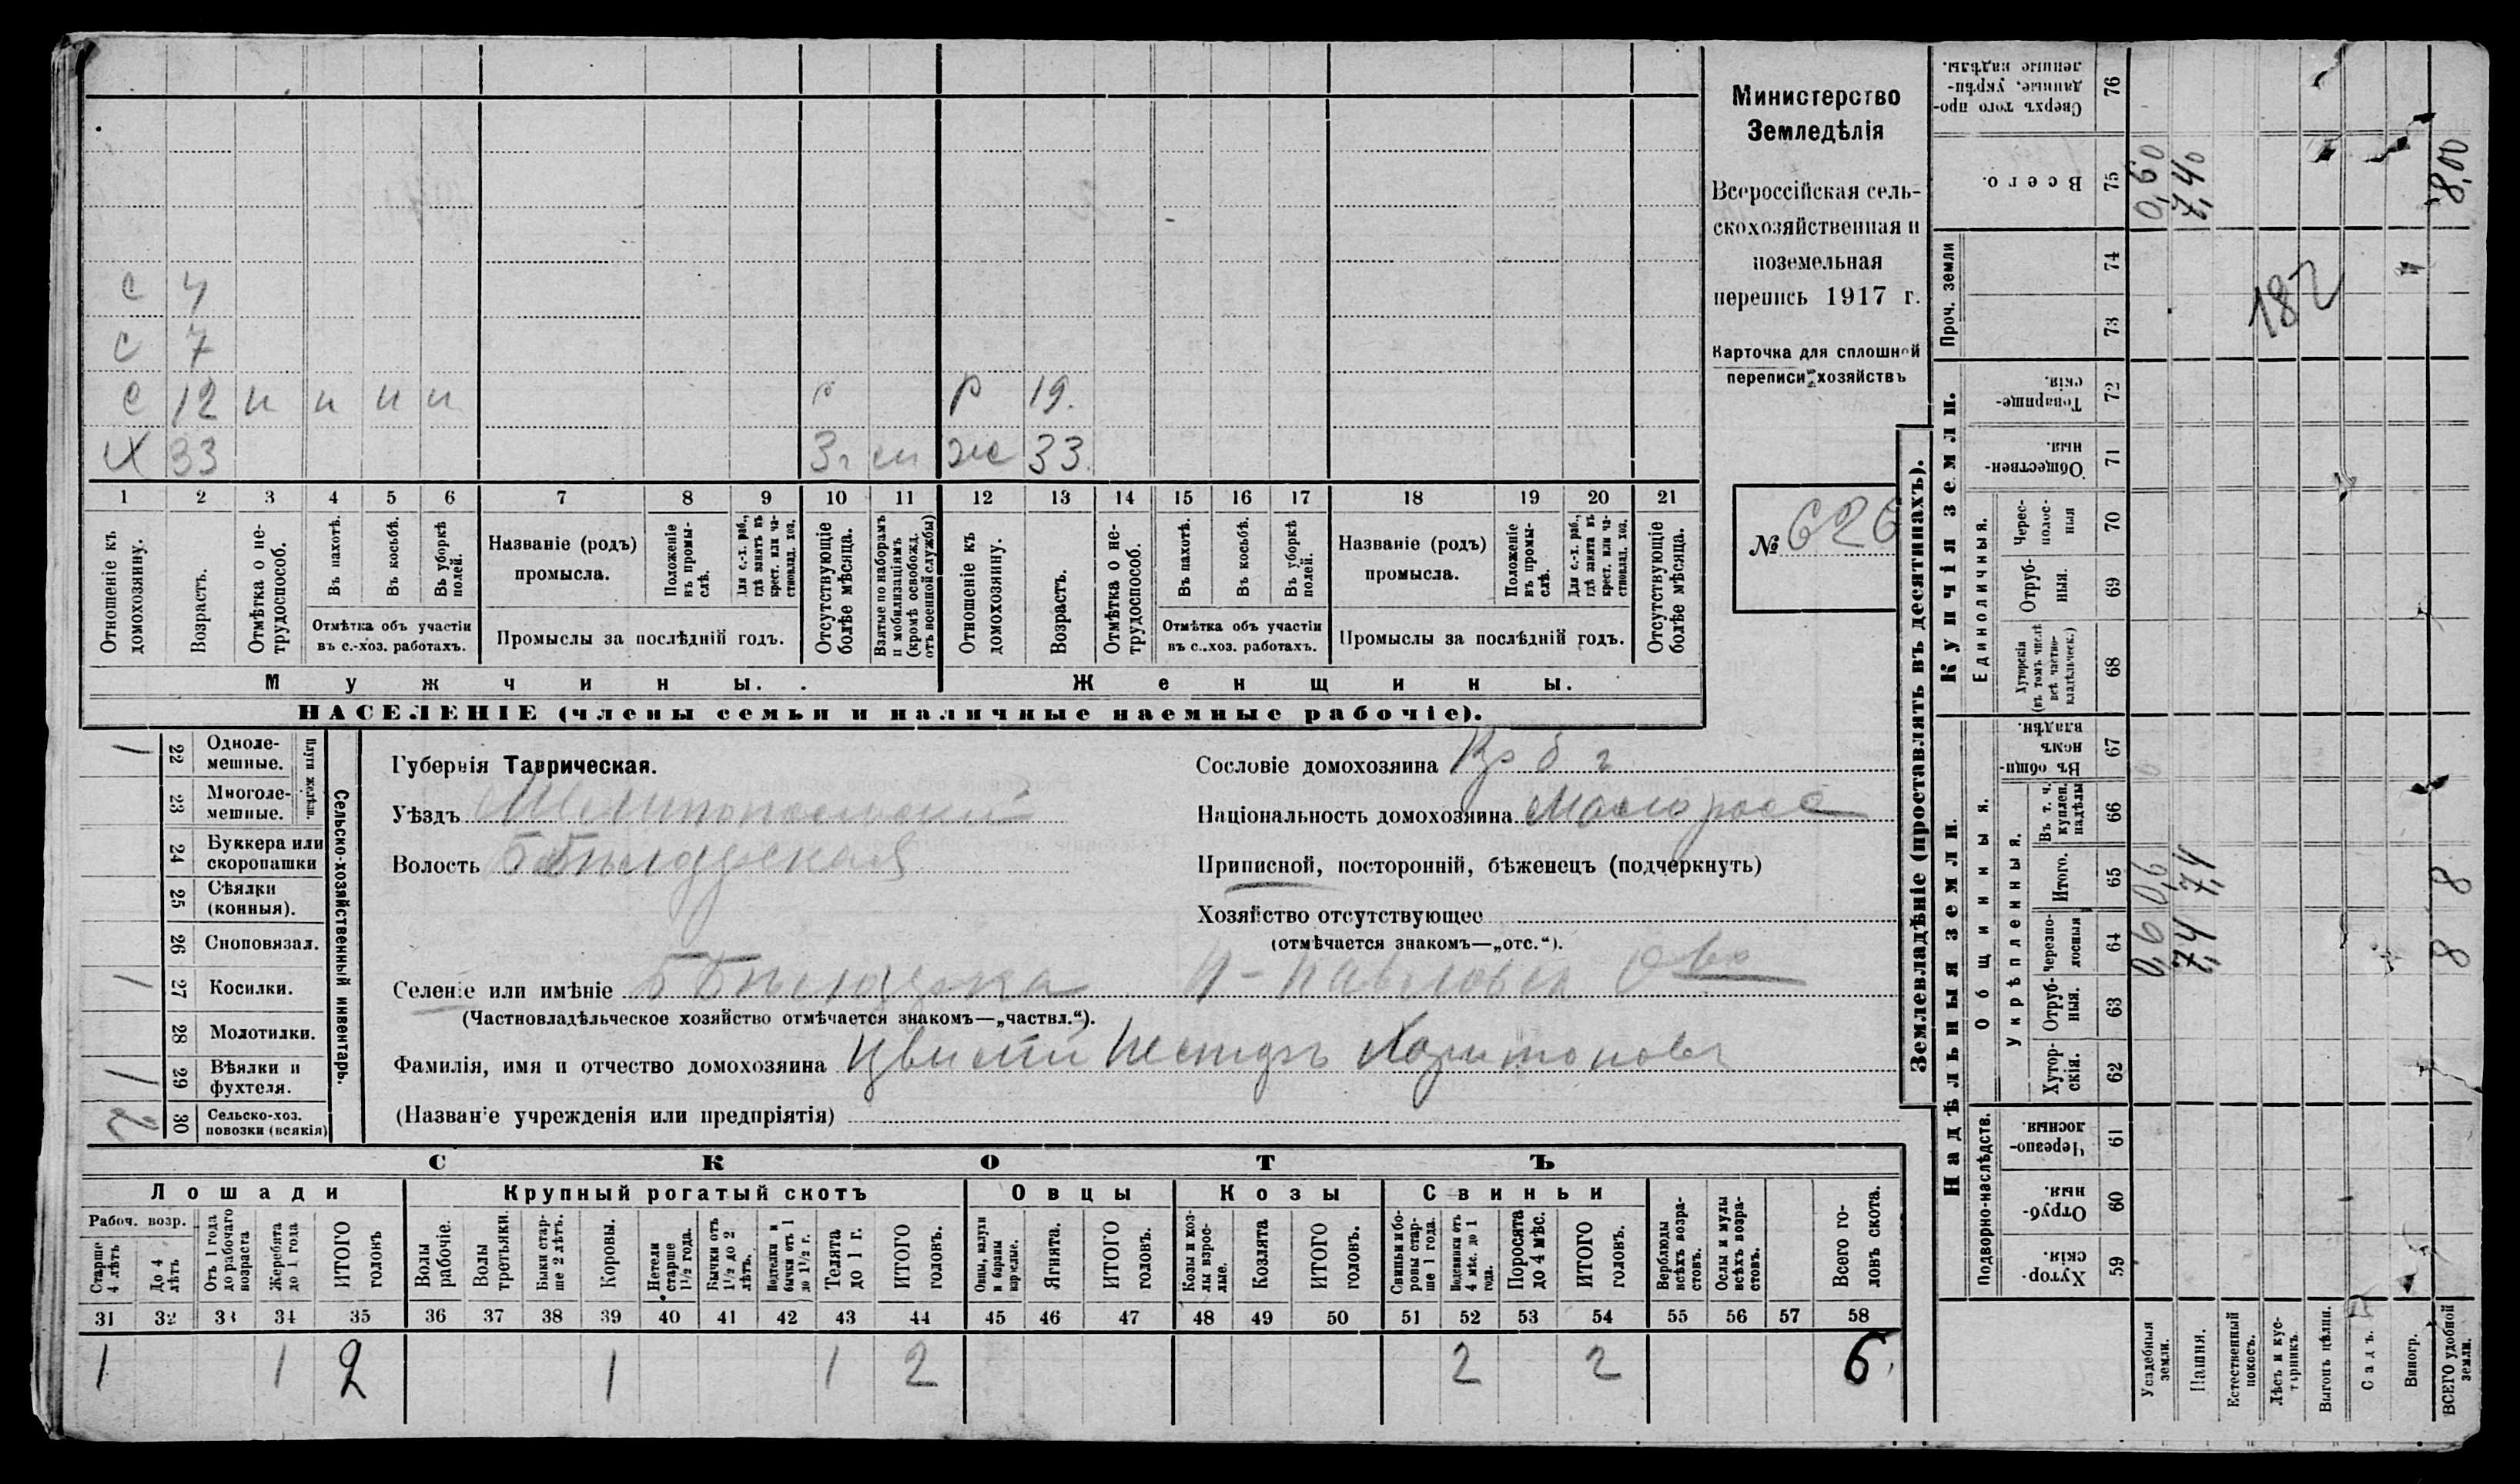 Министерство
Земледѣлія
Всероссійская сель-
скохозяйственная и
поземельная
перепись 1917 г.
Карточка для сплошной
переписи хозяйствъ
№ 626
с 4
с 7
с 12 и и и и р 19.
Х 33 3 г ж 33
1 2 3 4 5 6 7 8 9 10 11 12 13 14 15 16 17 18 19 20 21
Отношеніе къ домохозяину.
Возрастъ.
Отмѣтка о не-трудоспособ.
Въ пахотѣ.
Въ косьбѣ.
Въ уборкѣ полей.
Отмѣтка объ участіи
въ с.-хоз. работахъ.
Названіе (родъ)
промысла.
Положеніе въ промы-слѣ.
Для с.-х. раб., гдѣ занятъ въ крест. или ча-стновлад. хоз.
Промыслы за послѣдній годъ.
Отсутствующіе болѣе мѣсяца.
Взятые по наборамъ и мобилизаціямъ (кромѣ освобожд. отъ военной службы)
Отношеніе къ домохозяину.
Возрастъ.
Отмѣтка о не-трудоспособ.
Въ пахотѣ.
Въ косьбѣ.
Въ уборкѣ полей.
Отмѣтка объ участіи
въ с..хоз. работахъ.
Названіе (родъ)
промысла.
Положеніе въ промы-слѣ.
Для с.-х. раб., гдѣ занята въ крест. или ча-стновлад. хоз.
Промыслы за послѣдній годъ.
Отсутствующіе болѣе мѣсяца.
Мужчины.
Женщины.
НАСЕЛЕНІЕ (члены семьи и наличные наемные рабочіе).
Сельско-хозяйственный инвентарь.
Плуги желѣзн.
22 Одноле-мешные. 1
23 Многоле-мешные.
24 Буккера или скоропашки
25 Сѣялки (конныя).
26 Сноповязал.
27 Косилки. 1
28 Молотилки.
29 Вѣялки и фухтеля. 1
30 Сельско-хоз. повозки (всякія) 2
Губернія Таврическая.
Уѣздъ Мелитопольскій
Волость Б Бѣлозерская
Сословіе домохозяина
Національность домохозяина Малоросс
Приписной, посторонній, бѣженецъ (подчеркнуть)
Хозяйство отсутствующее
(отмѣчается знакомъ—„отс.“).
Селеніе или имѣніе Б Бѣлозерка Н-Павловск О-во
(Частновладѣльческое хозяйство отмѣчается знакомъ—„частвл.“).
Фамилія, имя и отчество домохозяина Несторъ Харитоновъ
(Названіе учрежденія или предпріятія)
СКОТЪ
Лошади
Крупный рогатый скотъ
Овцы
Козы
Свиньи
Рабоч. возр.
Старше 4 лѣтъ
До 4 лѣтъ
Отъ 1 года до рабочаго возраста
Жеребята до 1 года
ИТОГО головъ
Волы рабочіе.
Волы третьяки.
Быки стар-ше 2 лѣтъ.
Коровы.
Нетели старше 1½ года.
Бычки отъ 1½ до 2 лѣтъ.
Подтелки и бычки отъ 1 до 1½ г.
Телята до 1 г.
ИТОГО головъ.
Овцы, валухи и бараны взрослые.
Ягнята.
ИТОГО головъ.
Козы и коз-лы взрос-лые.
Козлята
ИТОГО головъ.
Свиньи и бо-ровы стар-ше 1 года.
Подсвинки отъ 4 мѣс. до 1 года.
Поросята до 4 мѣс.
ИТОГО головъ.
Верблюды всѣхъ возра-стовъ.
Ослы и мулы всѣхъ возра-стовъ.
Всего го-ловъ скота.
31 32 33 34 35 36 37 38 39 40 41 42 43 44 45 46 47 48 49 50 51 52 53 54 55 56 57 58
1 1 2 1 1 2 2 2 6
Землевладѣніе (проставлять въ десятинахъ).
Надѣльныя земли.
Купчія земли.
Проч. земли
Подворно-наслѣдств.
Общинныя.
Укрѣпленныя.
Единоличныя.
Хутор-скія. 59
Отруб-ныя. 60
Черезпо-лосныя. 61
Хутор-скія. 62
Отруб-ныя. 63
Черезпо-лосныя 64
Итого. 65
Въ т. ч. куплен. надѣлы 66
Въ общи-номъ владѣн. 67
Хуторскія (въ томъ числѣ всѣ частно-владѣльческ.) 68
Отруб-ныя. 69
Черес-полос-ныя 70
Обществен-ныя. 71
Товарище-скія. 72
73
74
Всего. 75
Сверхъ того про-данные, укрѣп-ленные надѣлы. 76
Усадебныя земли. 0,6 0,6 0,60
Пашня. 7,4 7,4 7,40
Естественный покосъ.
Лѣсъ и кус-тарникъ.
Выгонъ цѣлин.
Садъ.
Виногр.
ВСЕГО удобной земли. 8 8 8,00
182